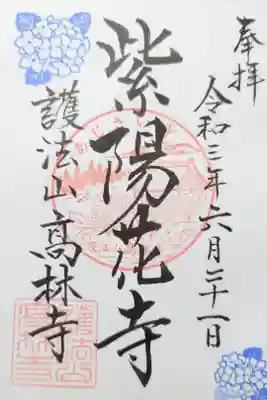 奉拝
令和三年六月二十一日
紫陽花寺
護法山高林寺